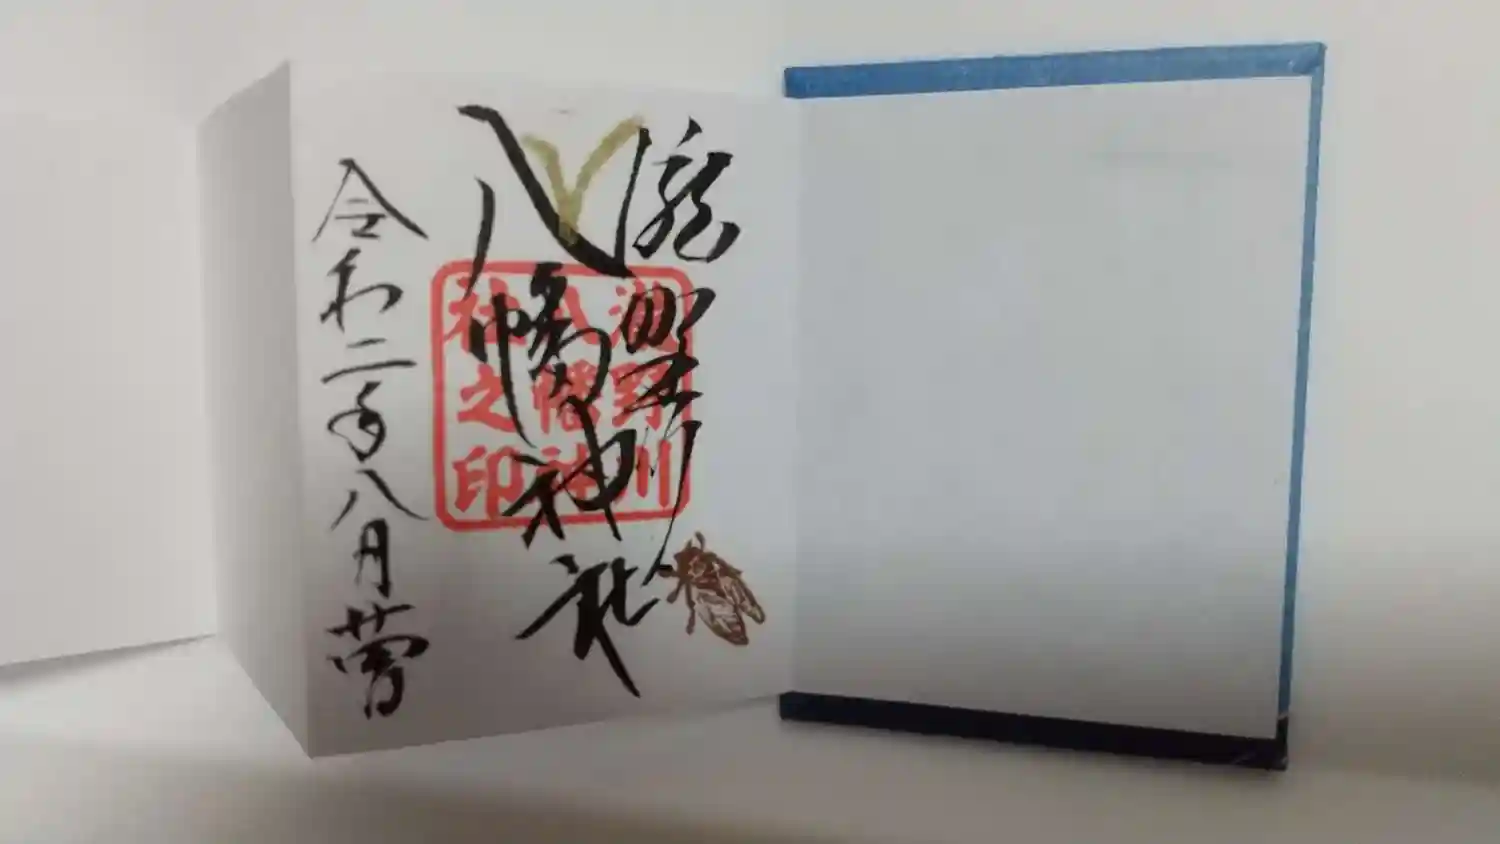 滝野川
八幡神社
令和二年八月
滝野川
八幡神
社之印